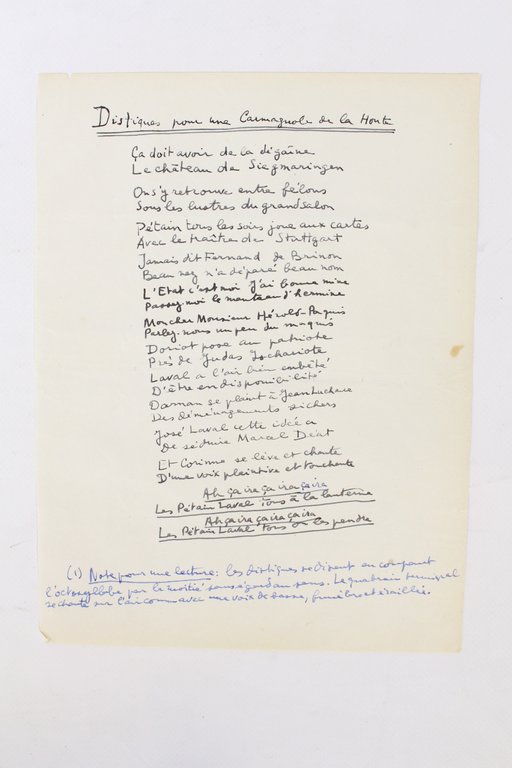 Distiques pour une Carmagnole de la Honte
Ça doit avoir de la dégaîne
Le château de Siegmaringen
On s'y retrouve entre félons
Sous les lustres du grand salon
Pétain tous les soirs joue aux cartes
Avec le traître de Stuttgart
Jamais dit Fernand de Brinon
Beau nez n'a déparé beau nom
L'Etat c'est moi J'ai bonne mine
Passez-moi le manteau d'hermine
Mon cher Monsieur Hérold-Paquis
Parlez-nous un peu du maquis
Doriot pose au patriote
Près de Judas Ischariote
Laval a l'air bien embêté
D'être en disponibilité
Darnan se plaint à Jean Luchaire
Des déménagements si chers
José Laval cette idée a
De séduire Marcel Déat
Et Corinne se lève et chante
D'une voix plaintive et touchante
Ah ça ira ça ira ça ira
Les Pétain Laval Tous à la lanterne
Ah ça ira ça ira ça ira
Les Pétain Laval tous on les pendra
(1) Note pour une lecture: les distiques se disent en coupant
l'octosyllabe par la moitié sans égard au sens. Le quatrain terminal
se chante sur l'air connu avec une voix de basse, funèbre et éraillée.